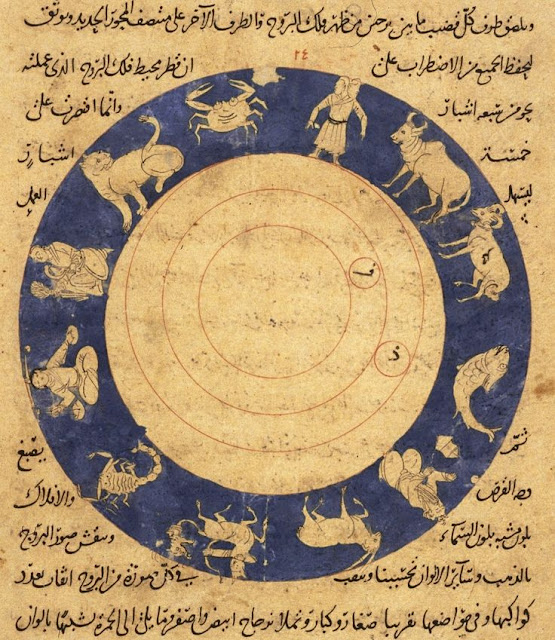 ويلصق طرف كل قضيب ما بين برجين من ظهر فلك البروج والطرف الآخر على منتصف المحور الحديد ويوثق
٢٤
ليحفظ الجميع من الاضطراب على ان قطر محيط فلك البروج الذى عملته
نحو من سبعه اشبار وانما اقتصرت على
خمسة اشبار
ليسهل العمل
ثم يصبغ
وجه القرص والافلاك
بلون شبيه بلون السماء وينقش صور البروج
بالذهب وسائر الالوان تحسينا ويثقب فى كل صورة من البروج اثقاب بعدد
كواكبها وفى مواضعها تقريبا صغار وكبار وتملا بزجاج ابيض واصفر وما الى الحمرة تشبيها بالوان